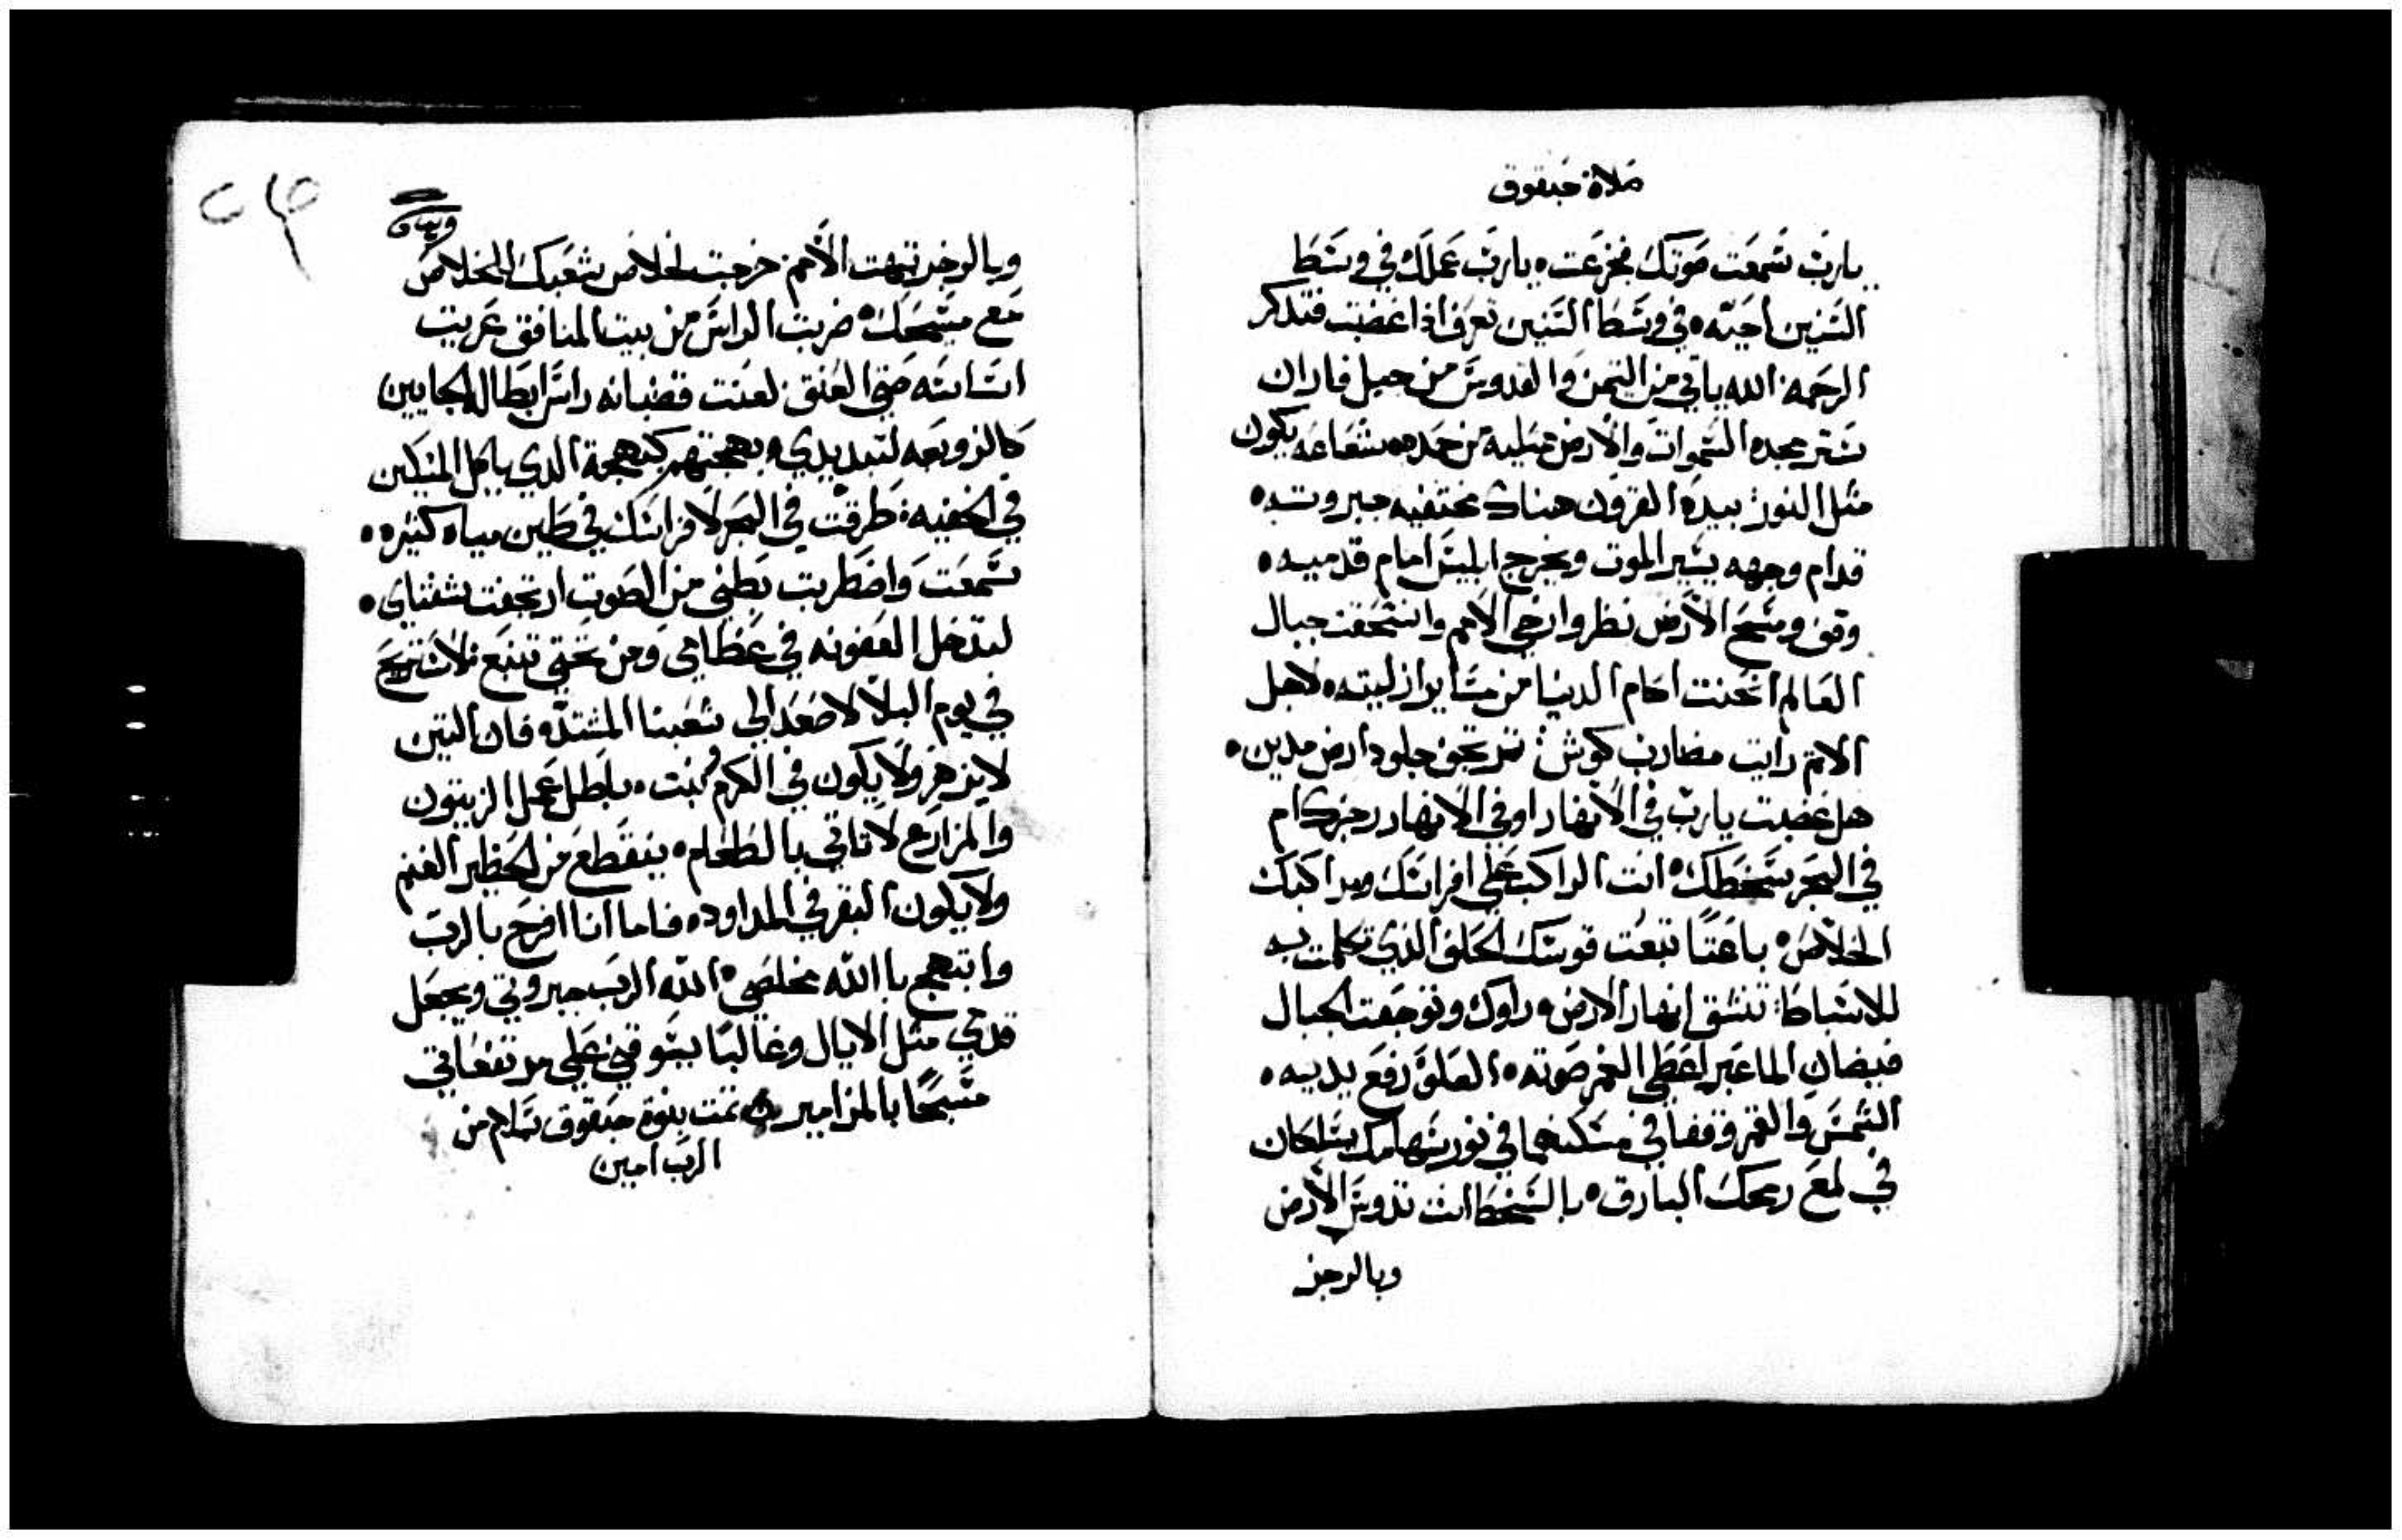 صلاة حبقوق
يارب سَمعَت صَوتكَ فجزعَت ويارب عَملكَ في وسَط
السَنين احيَه وفي وسَط السَنين تعرَف اذا غضبت فتدكر
الرحمه الله ياتي من التيمن والقدوس من جبل فاران
ستر مجده السَموات والارض ممتليه من حمده شعاعه يكون
مثل النور بيده القرون هناك مختفيه جبروته
قدام وجهه يسير الموت ويخرج ابليس امام قدميه
وقف ومسَح الارض نظر وارخي الامم وانسَحقت جبال
العالم انحنت اكام الدنيا من مساير ازليته لاجل
الاثم رايت مضارب كوش ترتجف جلود ارض مدين
هل غضبت يارب في الانهار او في الانهار رجزك ام
في البحر سَخطك انت الراكب علي افراسَك ومراكبك
الخلاص باعتًا تبعُت قوسَك الحلف الذي تكلمت به
للاسَباط تنشق انهار الارض راوك وتوجعَت الجبال
فيضان الماعبر اعَطي الغمر صَوته العلو رفع يديه
الشمسَ والقمر وقفا في مسَكنهما في نور سَهامك يسَلكان
في لمعَ رمحك البارق بالسَخط انت تدوسَ الارض
وبالرجز
وبالرجز تبهت الامم خرجت لخلاص شعَبك الخلاص
مَع مسَيحَك ضربت الراسَ من بيت المنافق عَريت
اسَاسَه حَتي العُنق لعَنت قضبانه راسَ ابطاله الجايين
كالزوبعه لتبديدي بهجتهم كبهجة الذي ياكل المسَكين
في الخفيه طرقت في البحر لافراسَك في طين مياه كثيره
سَمعَت واضطربت بَطني من الصَوت ارتجفت شفتاي
لتدخل العفونه في عَظامي ومن تحتي تنبع لان تسَتريح
في يوم البلا لاصَعَد الي شعَبنا المشتده فان التين
لا يزهر ولا يكون في الكرم نبت يبطل عَمل الزيتون
والمزارع لا تاتي بالطعَام ينقطع من الحظير الغنم
ولا يكون البقر في المداود فاما انا افرَح بالرب
وابتهج باالله مخلصي الله الرب جبروتي ويجعَل
قدمي مثل الايال وغالبًا يسَوقني عَلي مرتفعَاتي
مسَبحًا بالمزامير تمت نبوة حبقوق بسَلام من
الرب امين